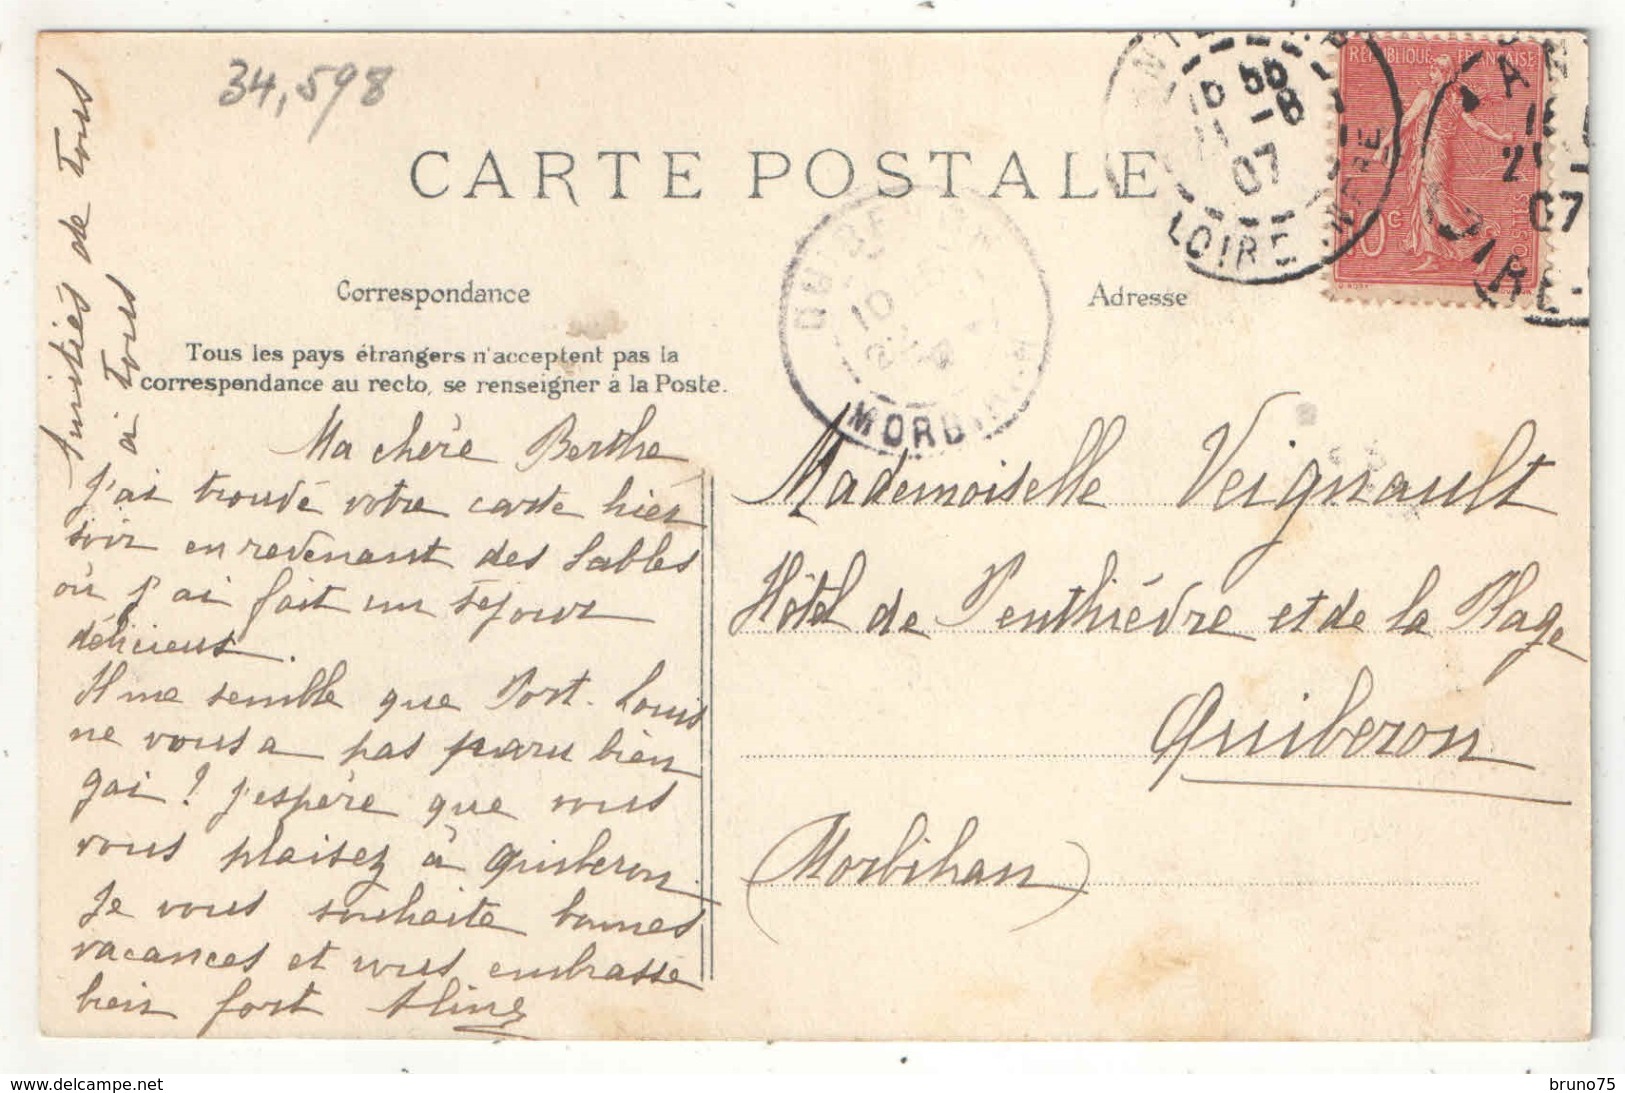 34,598
CARTE POSTALE
RÉPUBLIQUE FRANÇAISE
10c
POSTES
15 55
-8
07
LOIRE
21
07
QUIBERON
10
MORBIHAN
Correspondance
Adresse
Tous les pays étrangers n'acceptent pas la
correspondance au recto, se renseigner à la Poste.
Amitiés de tous
à tous
Ma chère Berthe
J'ai trouvé votre carte hier
soir en revenant des Sables
où j'ai fait un séjour
délicieux.
Il me semble que Port-Louis
ne vous a pas paru bien
gai ! j'espère que vous
vous plaisez à Quiberon.
Je vous souhaite bonnes
vacances et vous embrasse
bien fort Aline
Mademoiselle Veignault
Hôtel de Penthièvre et de la Plage
Quiberon
(Morbihan)
www.delcampe.net
bruno75